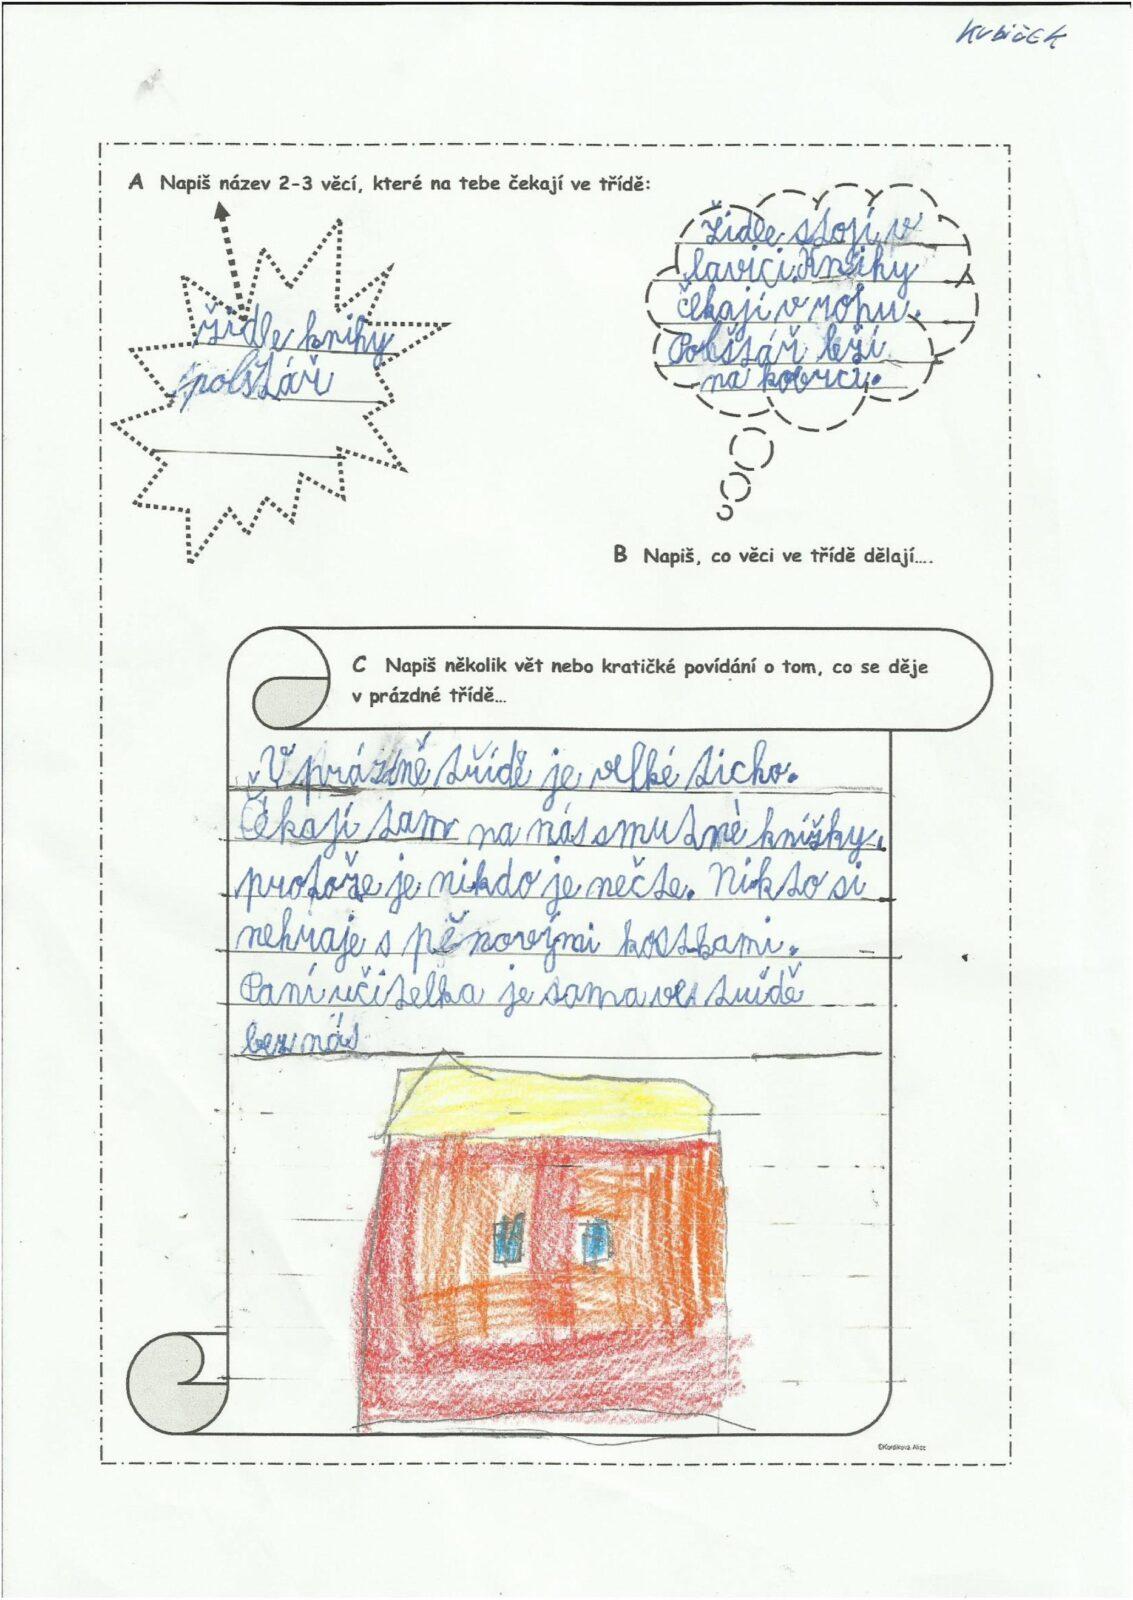 KUBIČEK
A Napiš název 2-3 věcí, které na tebe čekají ve třídě:
židle knihy
polštář
židle stojí v
lavici. Knihy
čekají v rohu.
Polštář leží
na koberci.
B Napiš, co věci ve třídě dělají....
C Napiš několik vět nebo kratičké povídání o tom, co se děje
v prázdné třídě...
V prázdně třídě je velké ticho.
Čekají tam na nás smutné knížky,
protože je nikdo je nečte. Nikto si
nehraje s pěnovými kostkami.
Paní učitelka je sama ve třídě
bez nás
©Kordíková Alice